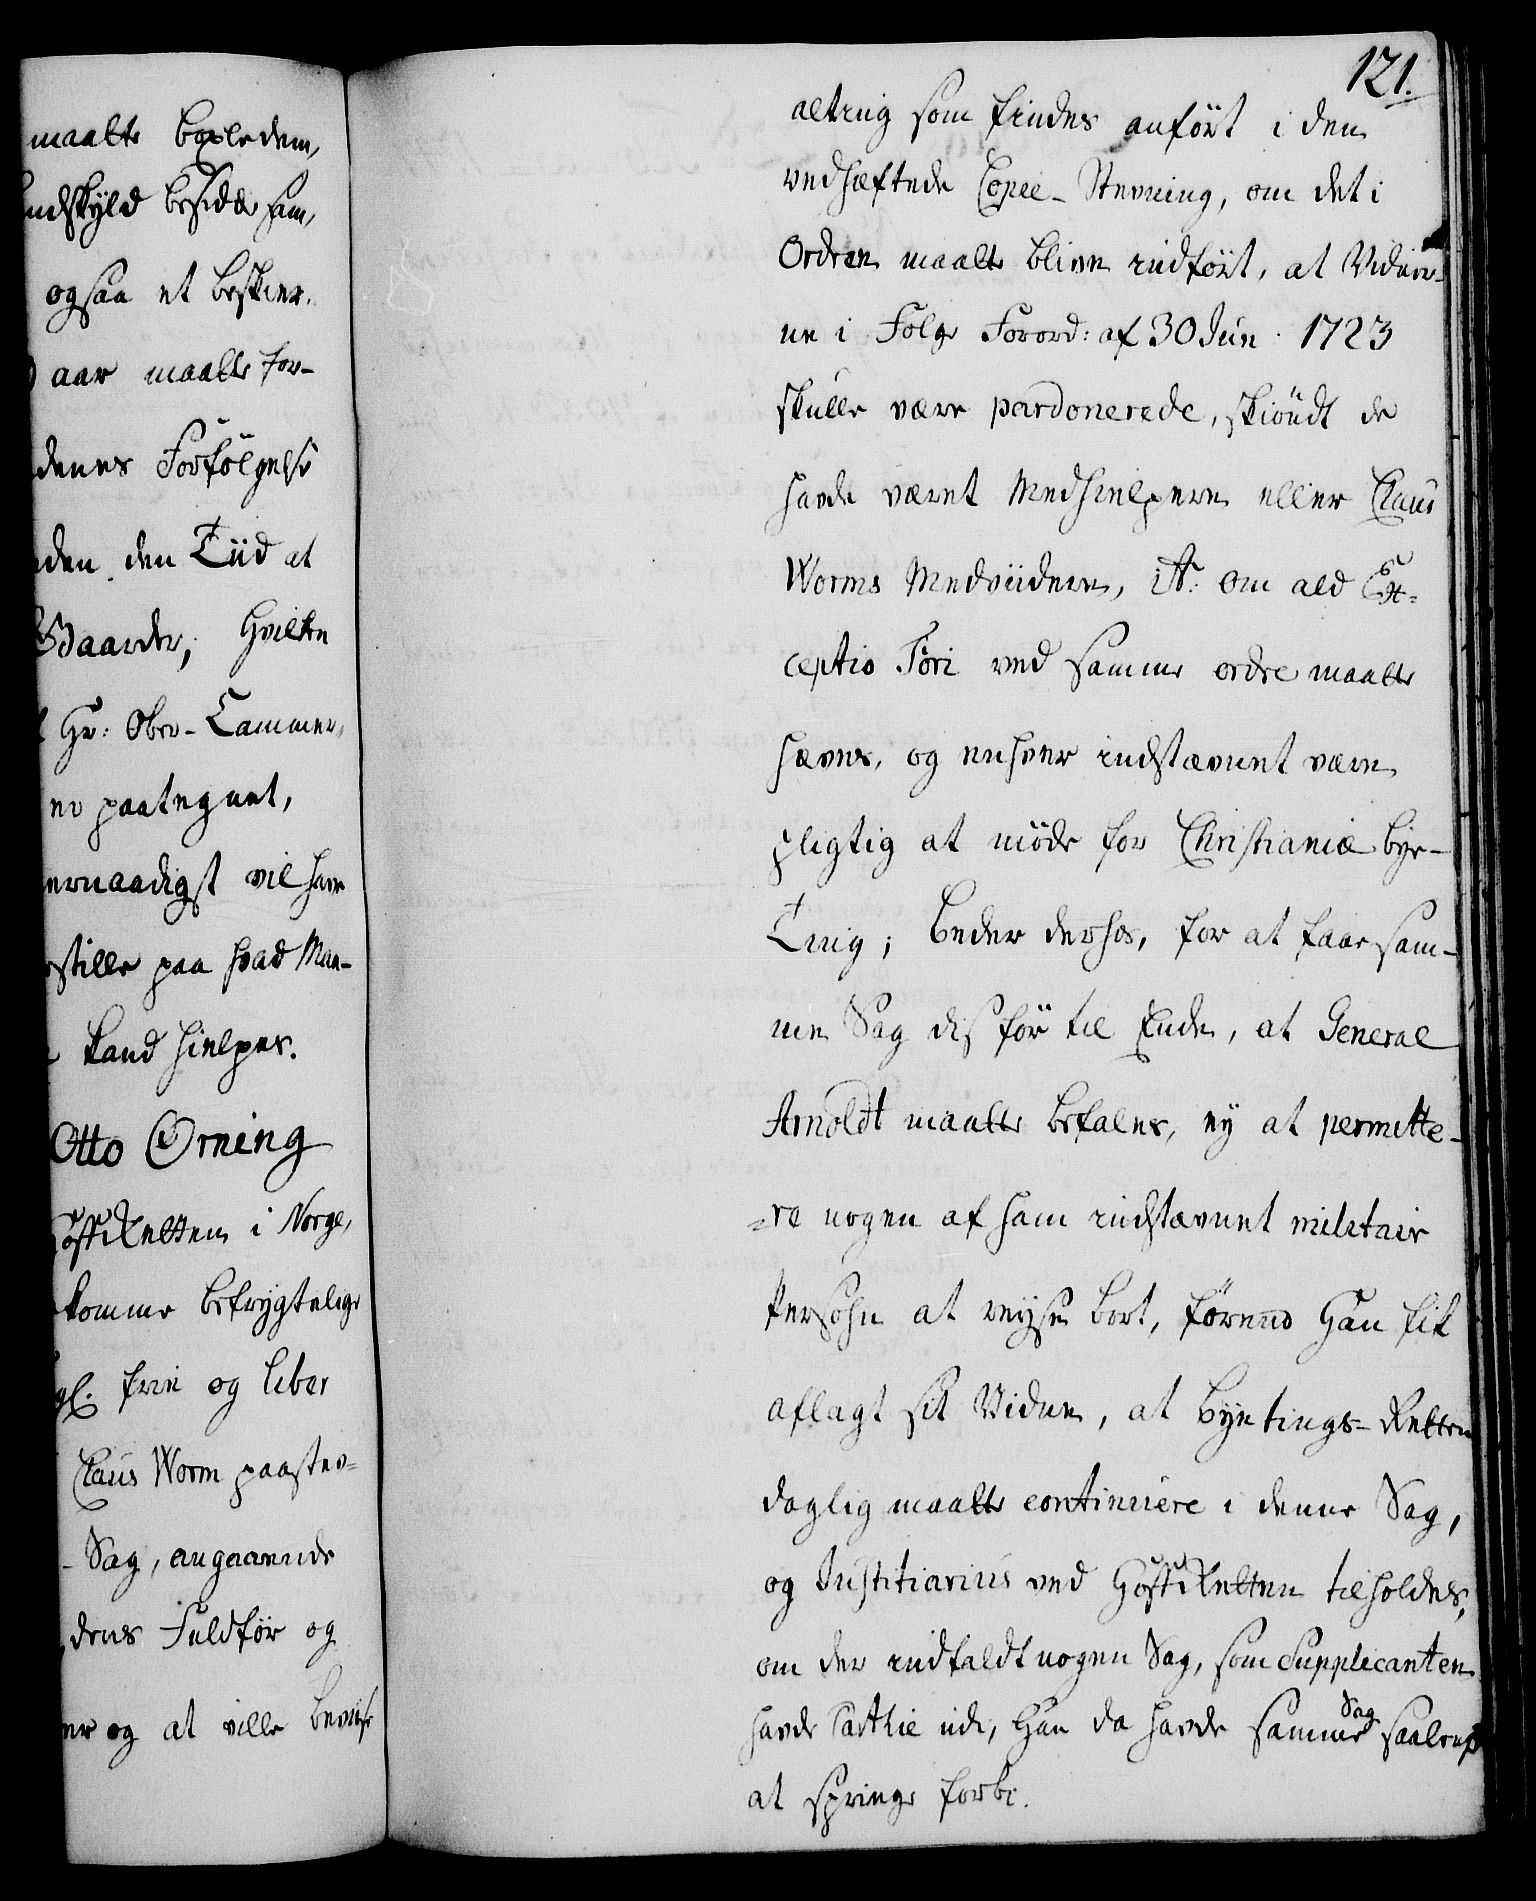 maalte boxledem,
ndskyld besidde ham,
ogsaa et beskier.
aar maatte for-
denes Forfölgelse
den den Tiid at
Gaarder, Hvilken
Hr: Ober-Cammer,
er paategnet,
ernaadigst vil have
stille paa hvad Maa-
kand hielpes.
Otto Örning
HoffRetten i Norge,
komme befrygtelige
frie og liber
Claus Worm paastev-
Sag, angaaende
dens Fuldför og
er og at ville beviise
121.
alting som findes anfört i den
vedhæftede Copie-Stevning, om det i
Ordren maatte blive indfört, at Vidner-
ne i Fölge Forord: af 30 Jun. 1723
skulle være pardonerede, skiöndt de
havde været Medhielpere eller Claus
Worms Medviidere, it: om ald Ex-
ceptio Fori ved samme ordre maatte
hæves, og enhver indstævnet være
pligtig at möde for Christianiæ bye-
Ting; beder derhos, for at faae sam-
me Sag dis för til Ende, at General
Arnoldt maatte befales, ey at permitte-
=re nogen af ham indstævnet militair
Persohn at reyse bort, förend Han fik
aflagt sit Vidne, at byetings-Retten
daglig maatte continuere i denne Sag,
og Justitiarius ved HoffRetten tilholdes,
om der indfaldt nogen Sag, som Supplicanten
havde Parthie udi, Han da havde samme Sag saalenge
at springe forbi.